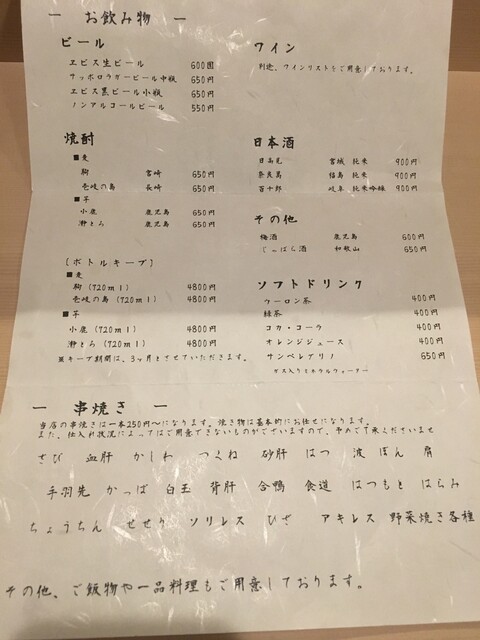 ー お飲み物 ー
ビール
ヱビス生ビール 600円
サッポロラガービール中瓶 650円
ヱビス黒ビール小瓶 650円
ノンアルコールビール 550円
ワイン
別途、ワインリストをご用意しております。
焼酎
■麦
駒 宮崎 650円
壱岐の島 長崎 650円
■芋
小鹿 鹿児島 650円
瀞とろ 鹿児島 650円
日本酒
日高見 宮城 純米 900円
奈良萬 福島 純米 900円
百十郎 岐阜 純米吟醸 900円
その他
梅酒 鹿児島 600円
じゃばら酒 和歌山 650円
(ボトルキープ)
■麦
駒(720ml) 4800円
壱岐の島(720ml) 4800円
■芋
小鹿(720ml) 4800円
瀞とろ(720ml) 4800円
※キープ期間は、3ヶ月とさせていただきます。
ソフトドリンク
ウーロン茶 400円
緑茶 400円
コカ・コーラ 400円
オレンジジュース 400円
サンペレグリノ 650円
ガス入りミネラルウォーター
ー 串焼き ー
当店の串焼きは一本250円〜になります。焼き物は基本的にお任せになります。
また、仕入れ状況によってはご用意できないものがございますので、予めご了承くださいませ
さび 血肝 かしわ つくね 砂肝 はつ 波 ぼん 肩
手羽先 かっぱ 白玉 背肝 合鴨 食道 はつもと はらみ
ちょうちん せせり ソリレス ひざ アキレス 野菜焼き各種
その他、ご飯物や一品料理もご用意しております。